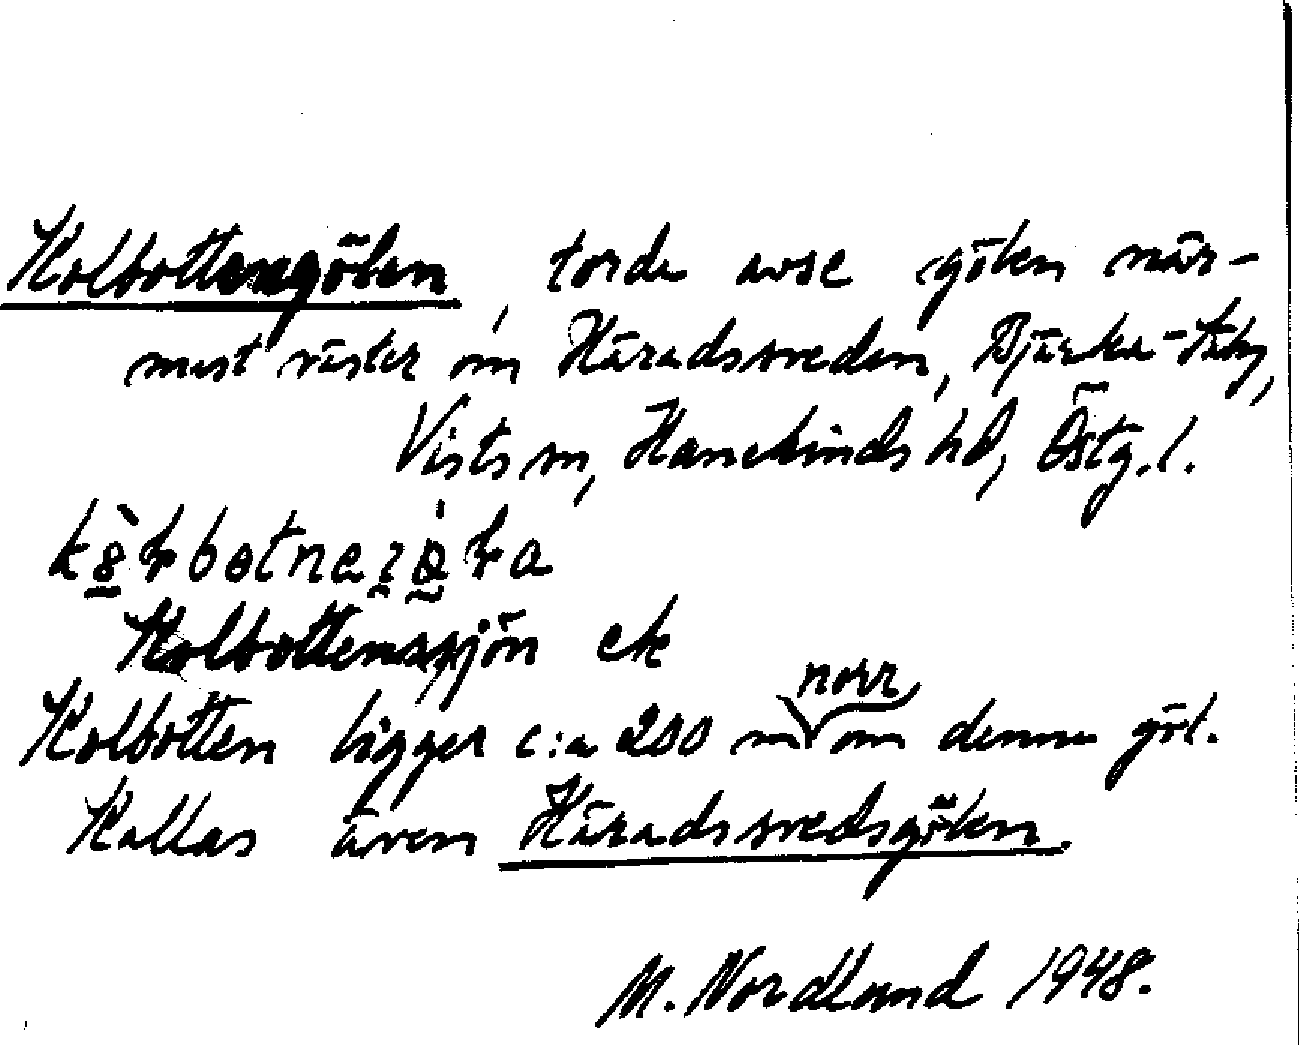 Kolbottengölen, torde avse gölen när-
mast väster om Häradssveden, Bjärka-Säby,
Vists sn, Hanekinds hd, Östg.l.
Kolbottenssjön ek
Kolbotten ligger c:a 200 m norr om denna göl.
Kallas även Häradssvedsgölen.
M. Nordlund 1948.